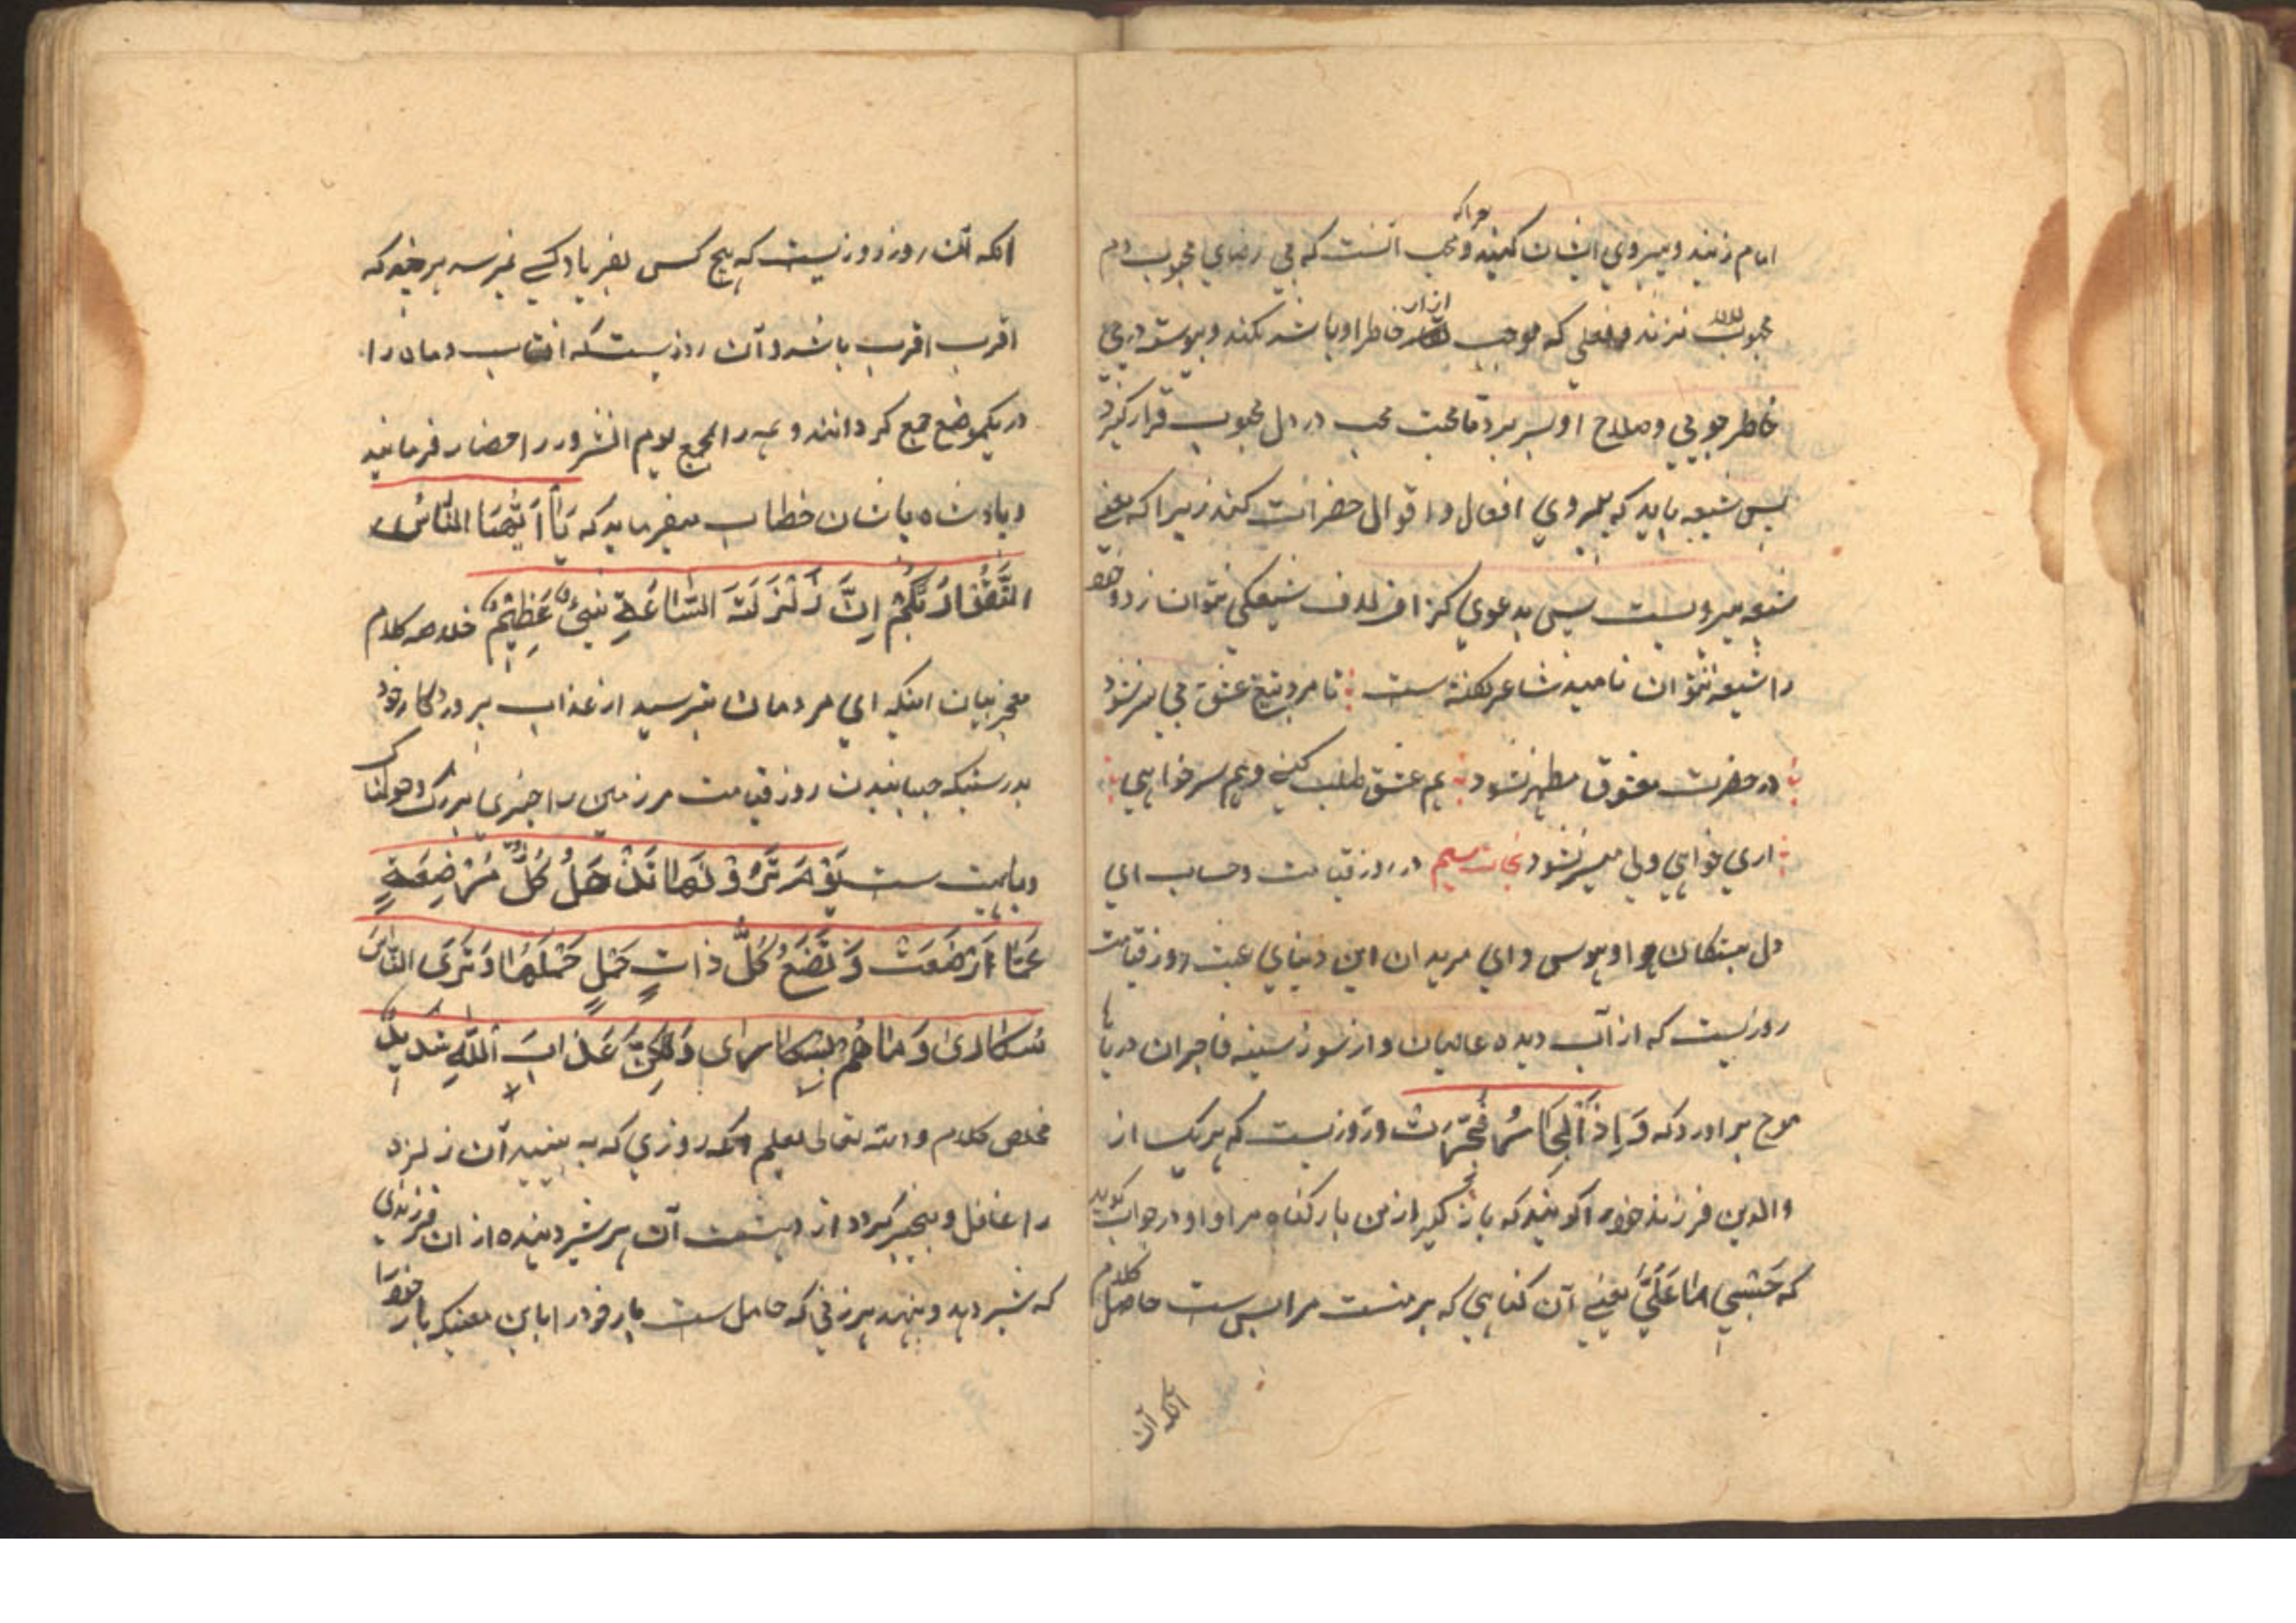 امام زنند و پیروی ایشان کنند زیرا که محب آنست که بی رضای محبوب دم
محبوب نزند و فعلی که موجب آزار خاطر او باشد نکند و پیوسته در پی
خاطر جویی و صلاح او بسر برد تا محبت محب در دل محبوب قرار گیرد
پس شیعه باید که پیروی افعال و اقوال حضرات کند زیرا که معنی
شیعه پیرویست پس بدعوی گزاف لاف شیعگی نتوان زد و خود
را شیعه نتوان نامید شاعر گفته است تا مرد بتیغ عشق بی سر نشود
در حضرت معشوق مطهر نشود هم عشق طلب کنی و هم سر خواهی
آری خواهی ولی میسر نشود نجات سیم در روز قیامت و حساب ای
دل بستگان هوا و هوس و ای مریدان این دنیای عبث روز قیامت
روزیست که از آب دیده عاصیان و از سوز سینه فاجران دریاها
موج برآورد که وَإِذَا الْبِحَارُ فُجِّرَتْ و روزیست که هر یک از
والدین فرزند خود را گویند که باز گیر از من بار گناه مرا و او در جواب گوید
که حَسْبِي مَا عَلَيَّ یعنی آن گناهی که بر منست مرا بس ست حاصل کلام
آنکه آن
آنکه آن روز روزیست که هیچ کس بفریاد کسی نمیرسد هر چند که
اقرب اقرب باشد و آن روزیست که آفتاب و ماه را
در یکموضع جمع گردانند و همه را بجمع یوم النشور احضار فرمایند
و پادشاه بایشان خطاب میفرماید که يَا أَيُّهَا النَّاسُ
اتَّقُوا رَبَّكُمْ إِنَّ زَلْزَلَةَ السَّاعَةِ شَيْءٌ عَظِيمٌ خلاصه کلام
معجز بیان اینکه ای مردمان بترسید از عذاب پروردگار خود
بدرستیکه جنبانیدن روز قیامت مر زمین را چیزی بزرگ و هولناک
و باهیبت ست يَوْمَ تَرَوْنَهَا تَذْهَلُ كُلُّ مُرْضِعَةٍ
عَمَّا أَرْضَعَتْ وَتَضَعُ كُلُّ ذَاتِ حَمْلٍ حَمْلَهَا وَتَرَى النَّاسَ
سُكَارَىٰ وَمَا هُمْ بِسُكَارَىٰ وَلَٰكِنَّ عَذَابَ اللَّهِ شَدِيدٌ
مخلص کلام والله تعالی یعلم آنکه روزی که به بینید آن زلزله
را غافل و بیخبر گردد از دهشت آن هر شیر دهنده از آن فرزندی
که شیر دهد و بنهد هر زنی که حامل ست بار خود را باین معنیکه بار خود را